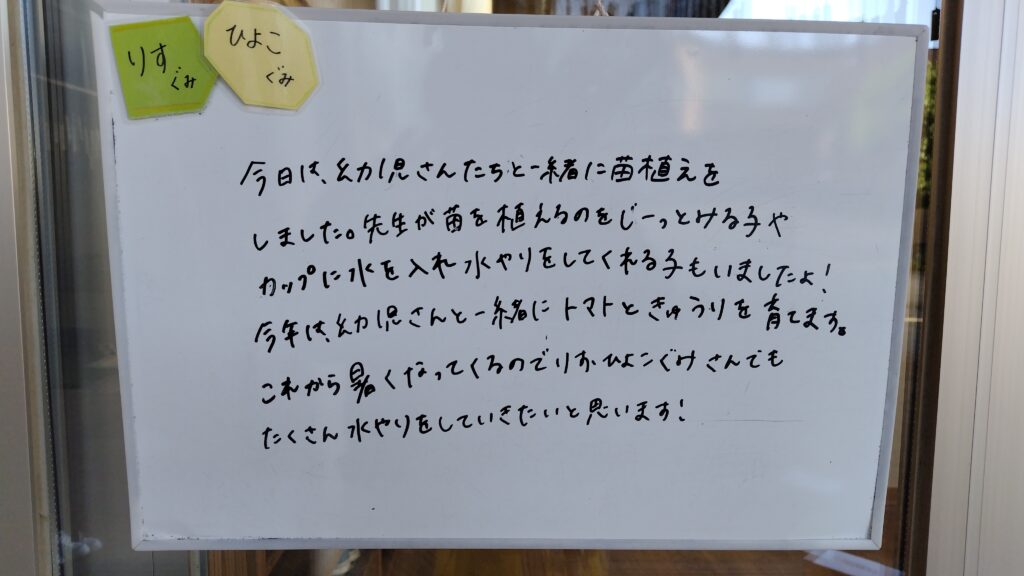 りす
ぐみ
ひよこ
ぐみ
今日は、幼児さんたちと一緒に苗植えを
しました。先生が苗を植えるのをじーっとみる子や
カップに水を入れ水やりをしてくれる子もいましたよ!
今年は、幼児さんと一緒にトマトときゅうりを育てます。
これから暑くなってくるのでりすひよこぐみさんでも
たくさん水やりをしていきたいと思います!